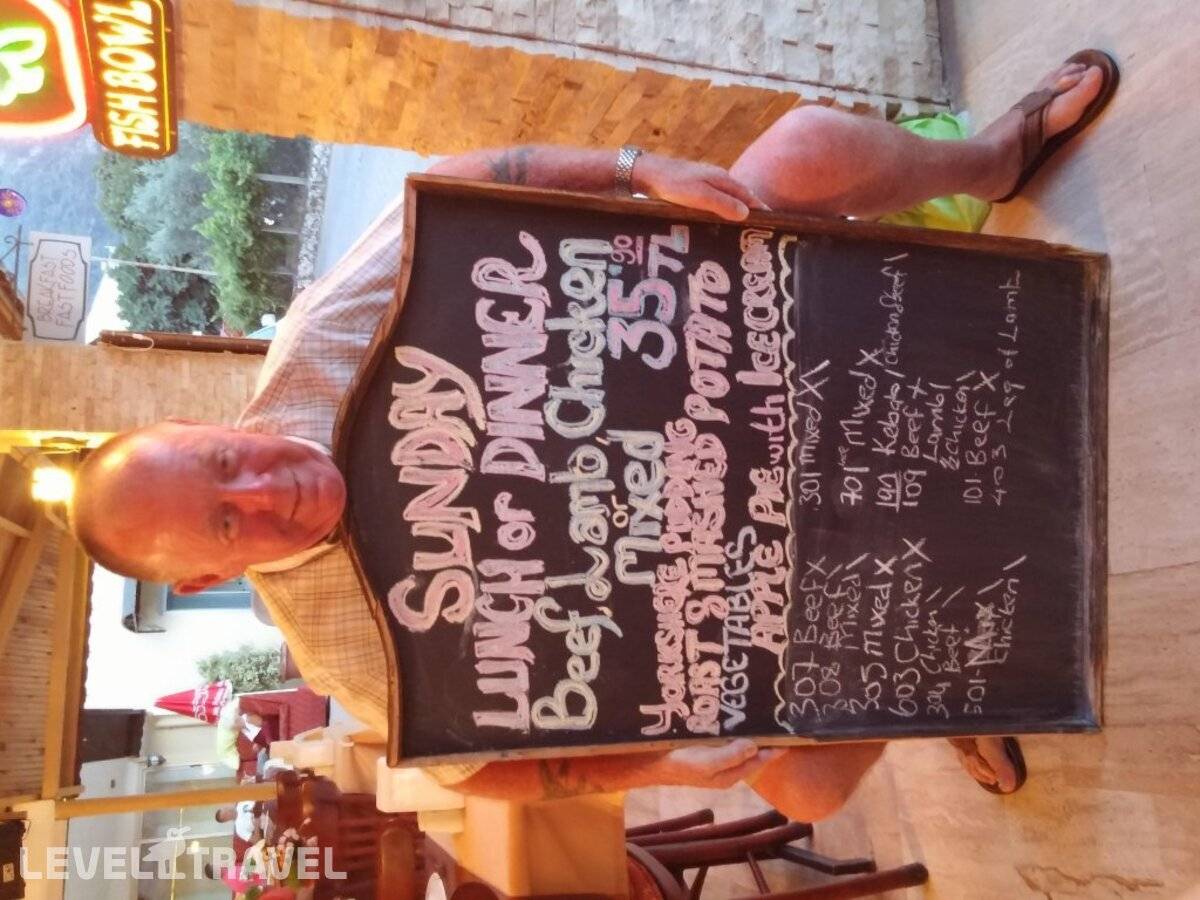 FISH BOWL
BREAKFAST
FAST FOODS
SUNDAY
LUNCH or DINNER
Beef, Lamb, Chicken
or
Mixed
35.90 TL
YORKSHIRE PUDDING
ROAST & MASHED POTATO
VEGETABLES
APPLE PIE with ICECREAM
307 Beef X
302 Beef \
Mixed \
305 Mixed X
603 Chicken X
304 Chicken \
Beef \
501 - Mix
Chicken \
301 Mixed X \
701 Mixed X
190 Kebab / Chicken
109 Beef X
Lamb \
& Chicken \
101 Beef X
403 Leg of Lamb
LEVEL TRAVEL